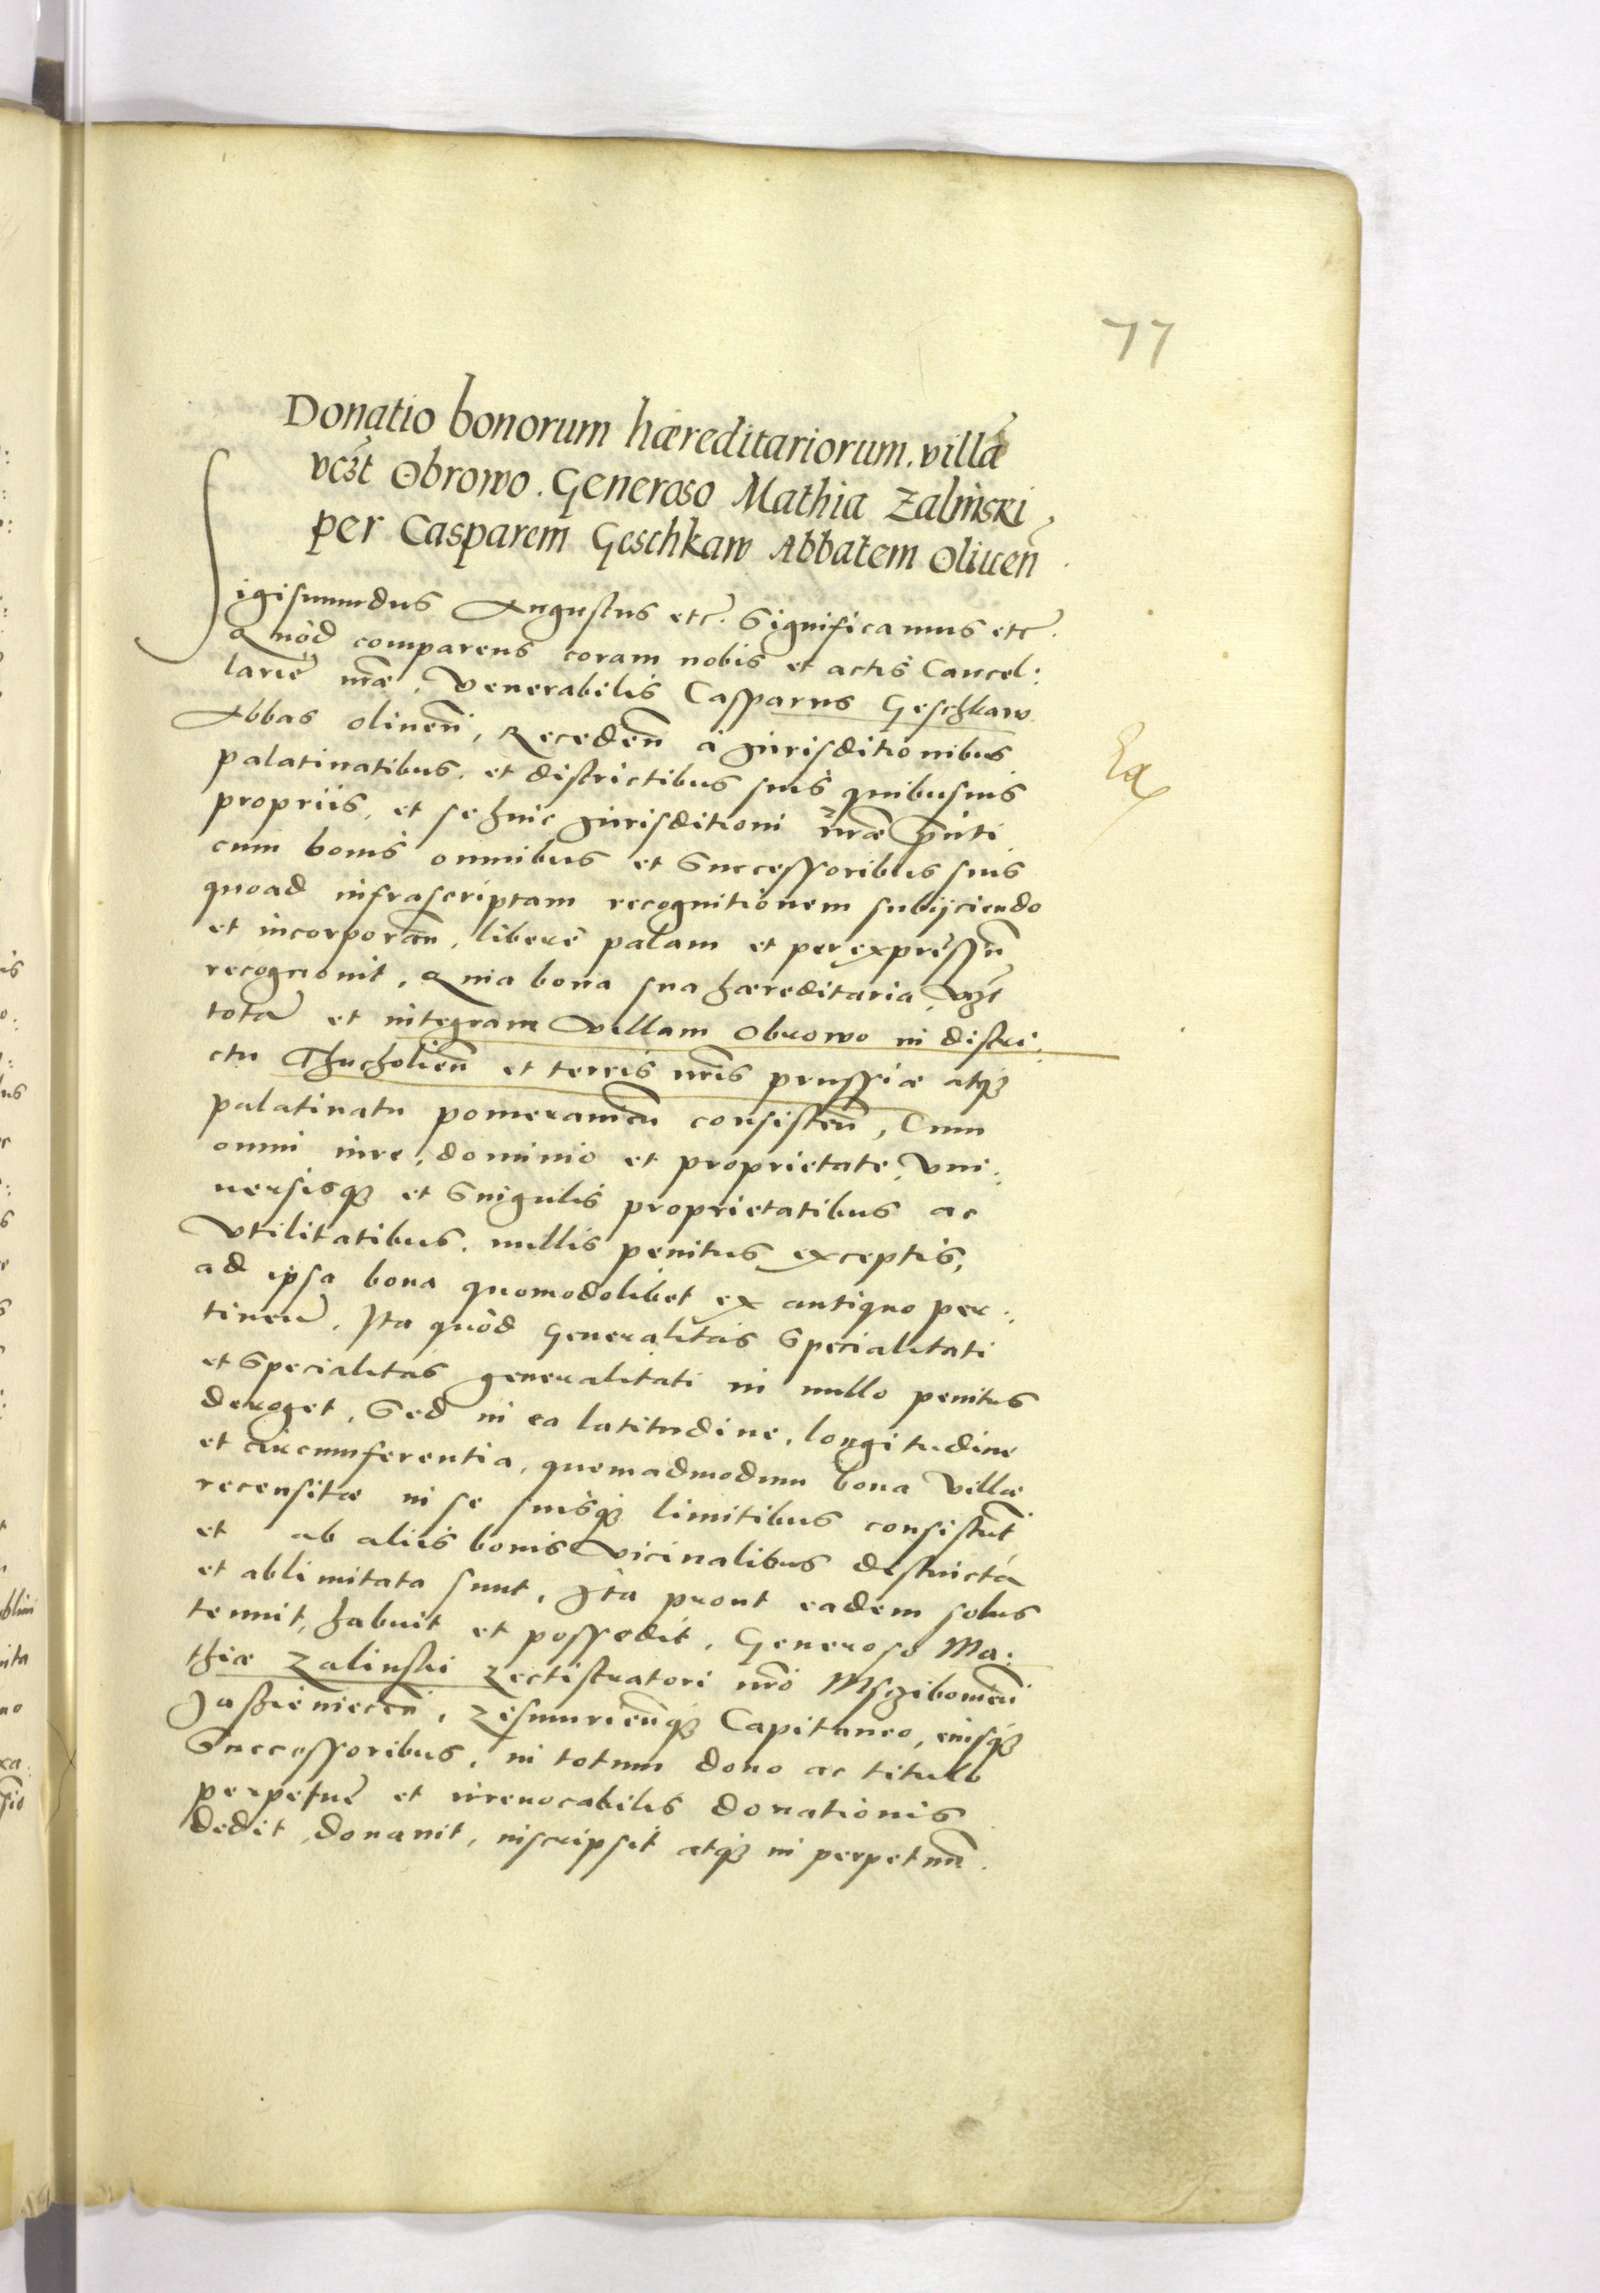 77
Donatio bonorum hæreditariorum. villæ
vczt Obrowo. Generoso Mathia Zalinski
per Casparem Geschkaw Abbatem Oliuen̄.
Sigismundus Augustus etc̃. Significamus etc̃.
Quòd comparens coram nobis et actis Cancel:
lariæ nr̃æ, Venerabilis Casparus Geschkaw
Abbas oliuen̄, Receden̄ à Jurisditionibus
palatinatibus, et districtibus suis quibusuis
proprijs, et se huic Jurisditioni nr̃æ pñti
cum bonis omnibus et Successoribus suis
quoad infrascriptam recognitionem subijciendo
et incorporan̄, liberè palam et per expressum̄
recognouit, Quia bona sua hæreditaria, vczt
totā et integram villam Obrowo in distri:
ctu Thucholien̄ et terris nr̃is prussiæ atq3
palatinatu pomeranien̄ consisten̄, Cum
omni iure, dominio et proprietate, Vni:
uersisq3 et Singulis proprietatibus ac
Vtilitatibus, nullis penitus exceptis,
ad ipsa bona quomodolibet ex antiquo per:
tinen̄, Ita quòd Generalitas Specialitati
et Specialitas generalitati in nullo penitus
deroget, Sed in ea latitudine, longitudine
et circumferentia, quemadmodum bona Villæ
recensitæ in se suisq3 limitibus consistūt
et ab alijs bonis Vicinalibus distincta
et ablimitata sunt, Ita prout eadem solus
tenuit, habuit et possedit, Generoso Ma:
thiæ Zalinski nr̃o
Jasieniecen̄, Capitaneo, eiusq3
Successoribus, in totum dono ac titulo
perpetuæ et irreuocabilis donationis
dedit, donauit, inscripsit atq3 in perpetuū.